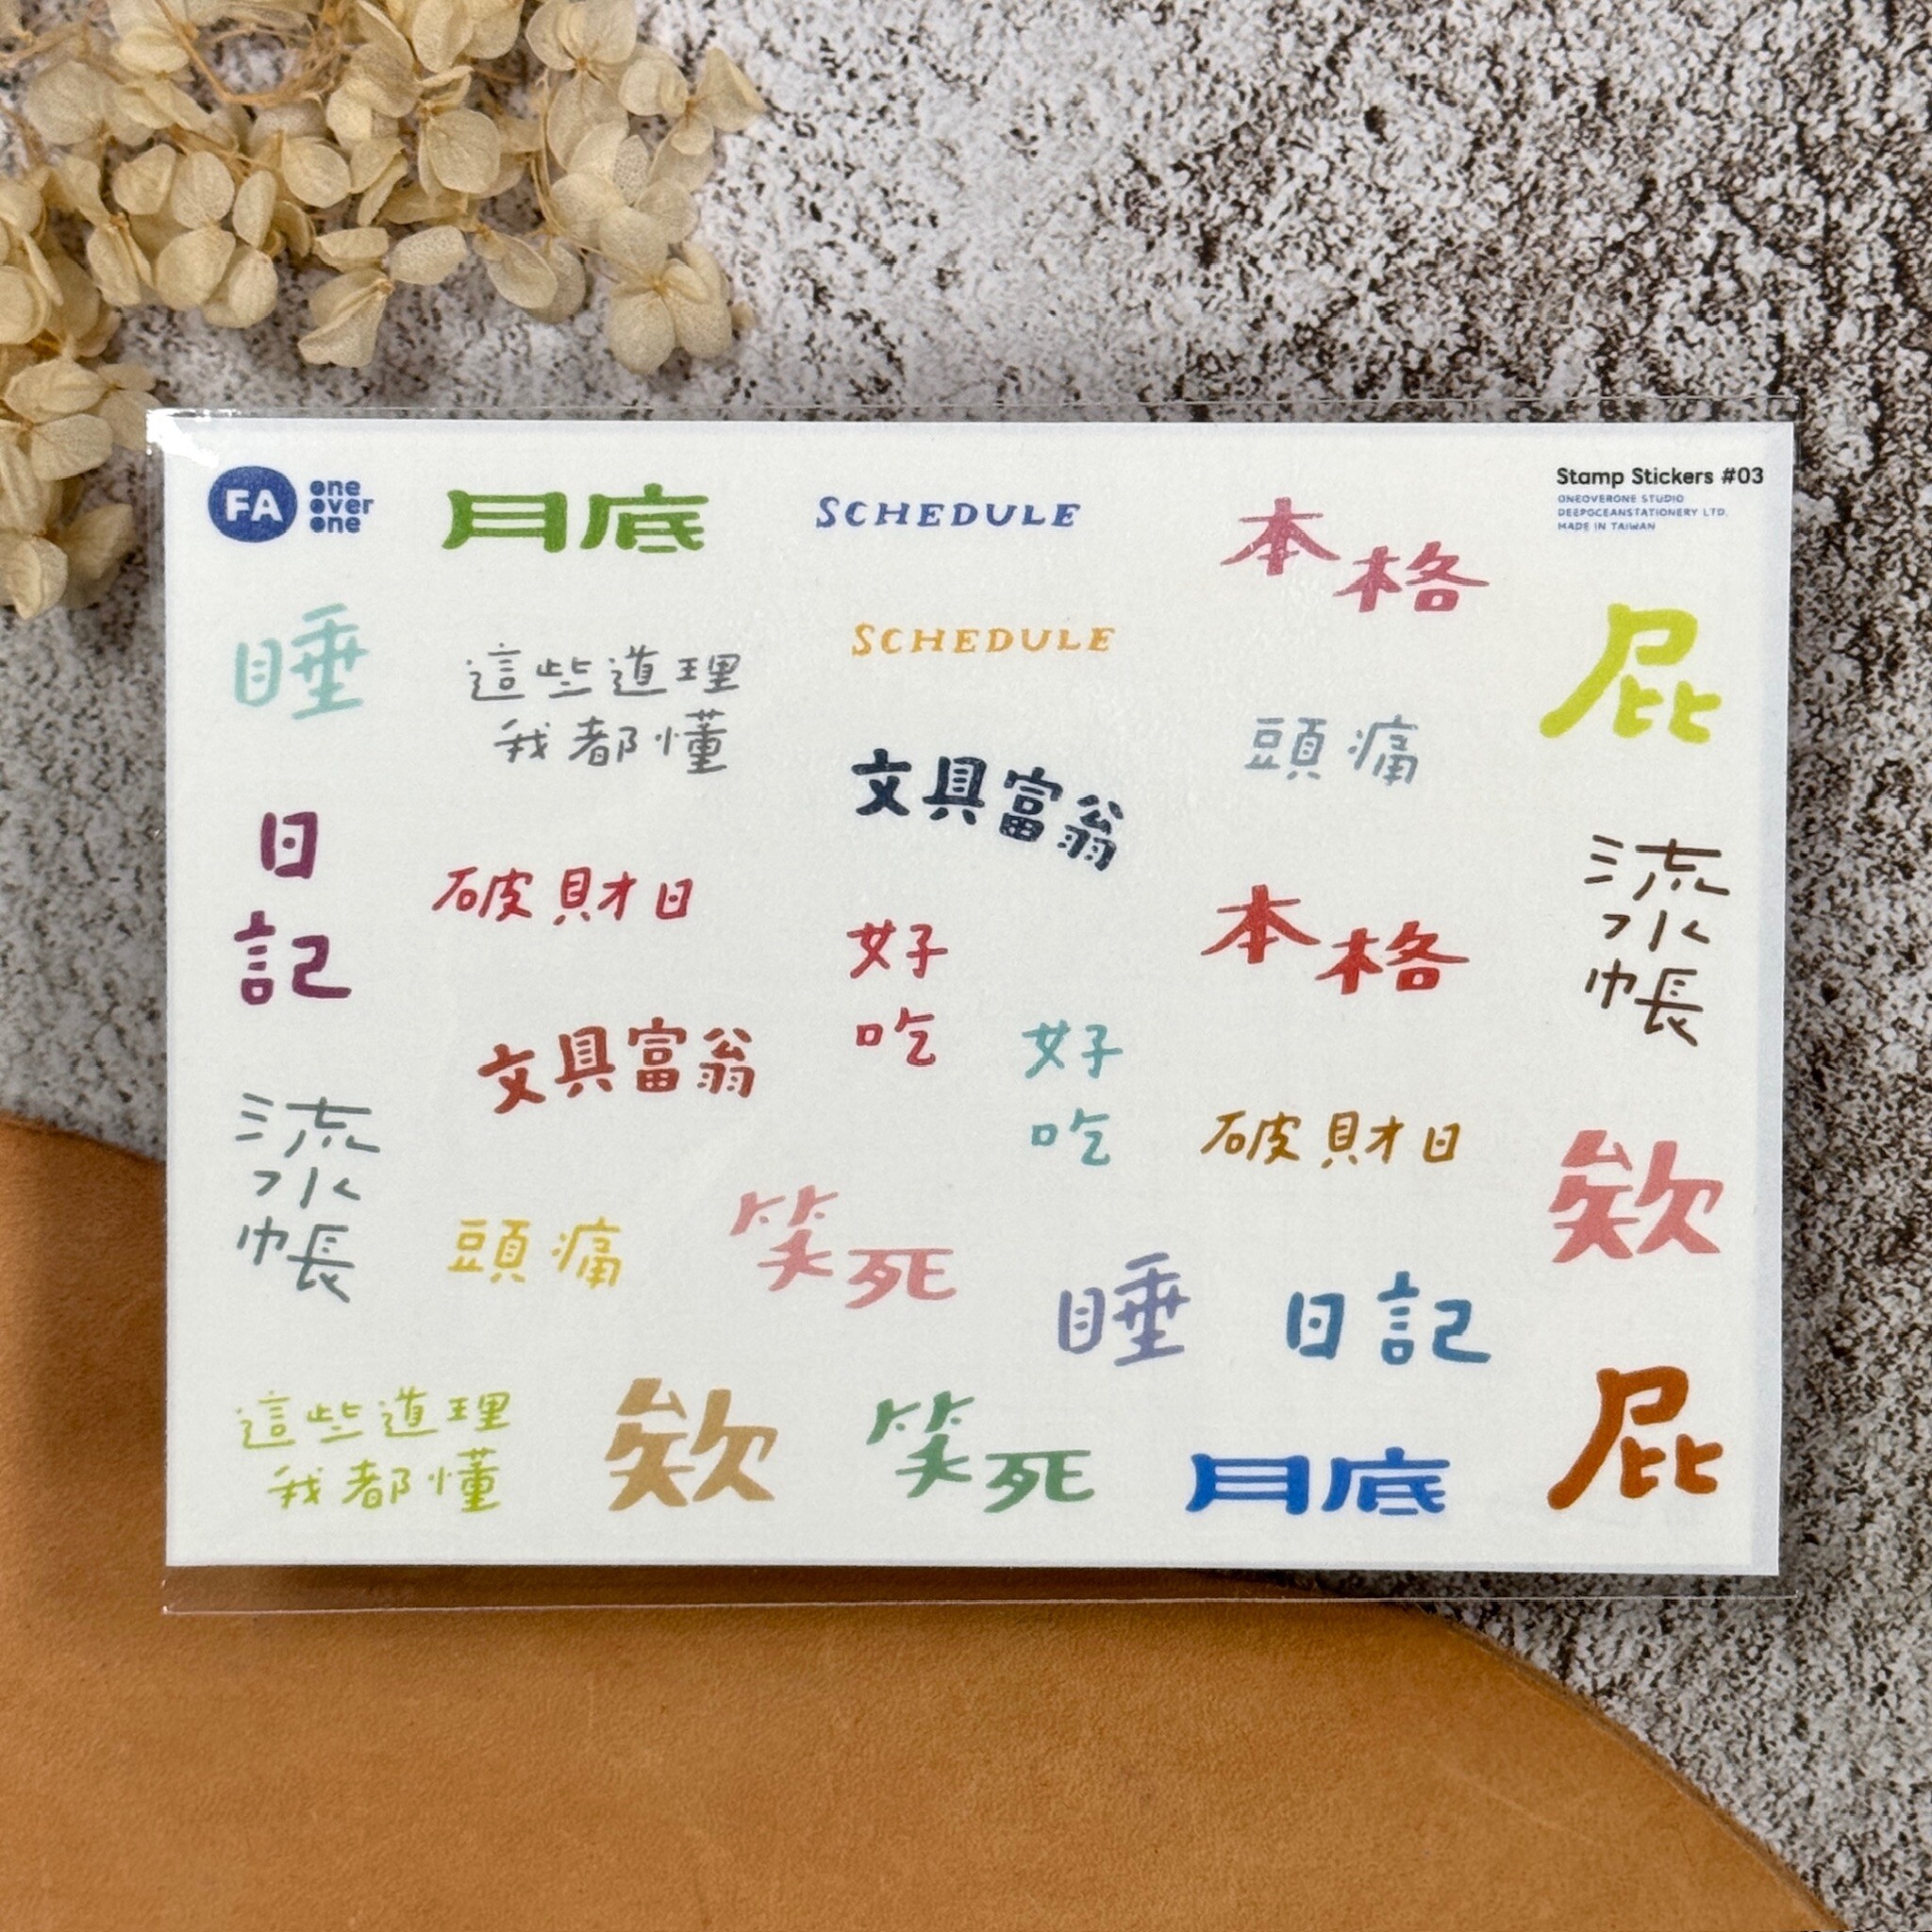 FA
one
over
one
月底
SCHEDULE
本格
Stamp Stickers #03
ONEOVERONE STUDIO
DEEPOCEANSTATIONERY LTD.
MADE IN TAIWAN
睡
這些道理
我都懂
SCHEDULE
頭痛
屁
日
記
破財日
文具富翁
好
吃
本格
流
水
帳
文具富翁
好
吃
破財日
流
水
帳
頭痛
笑死
睡
日記
欸
這些道理
我都懂
欸
笑死
月底
屁